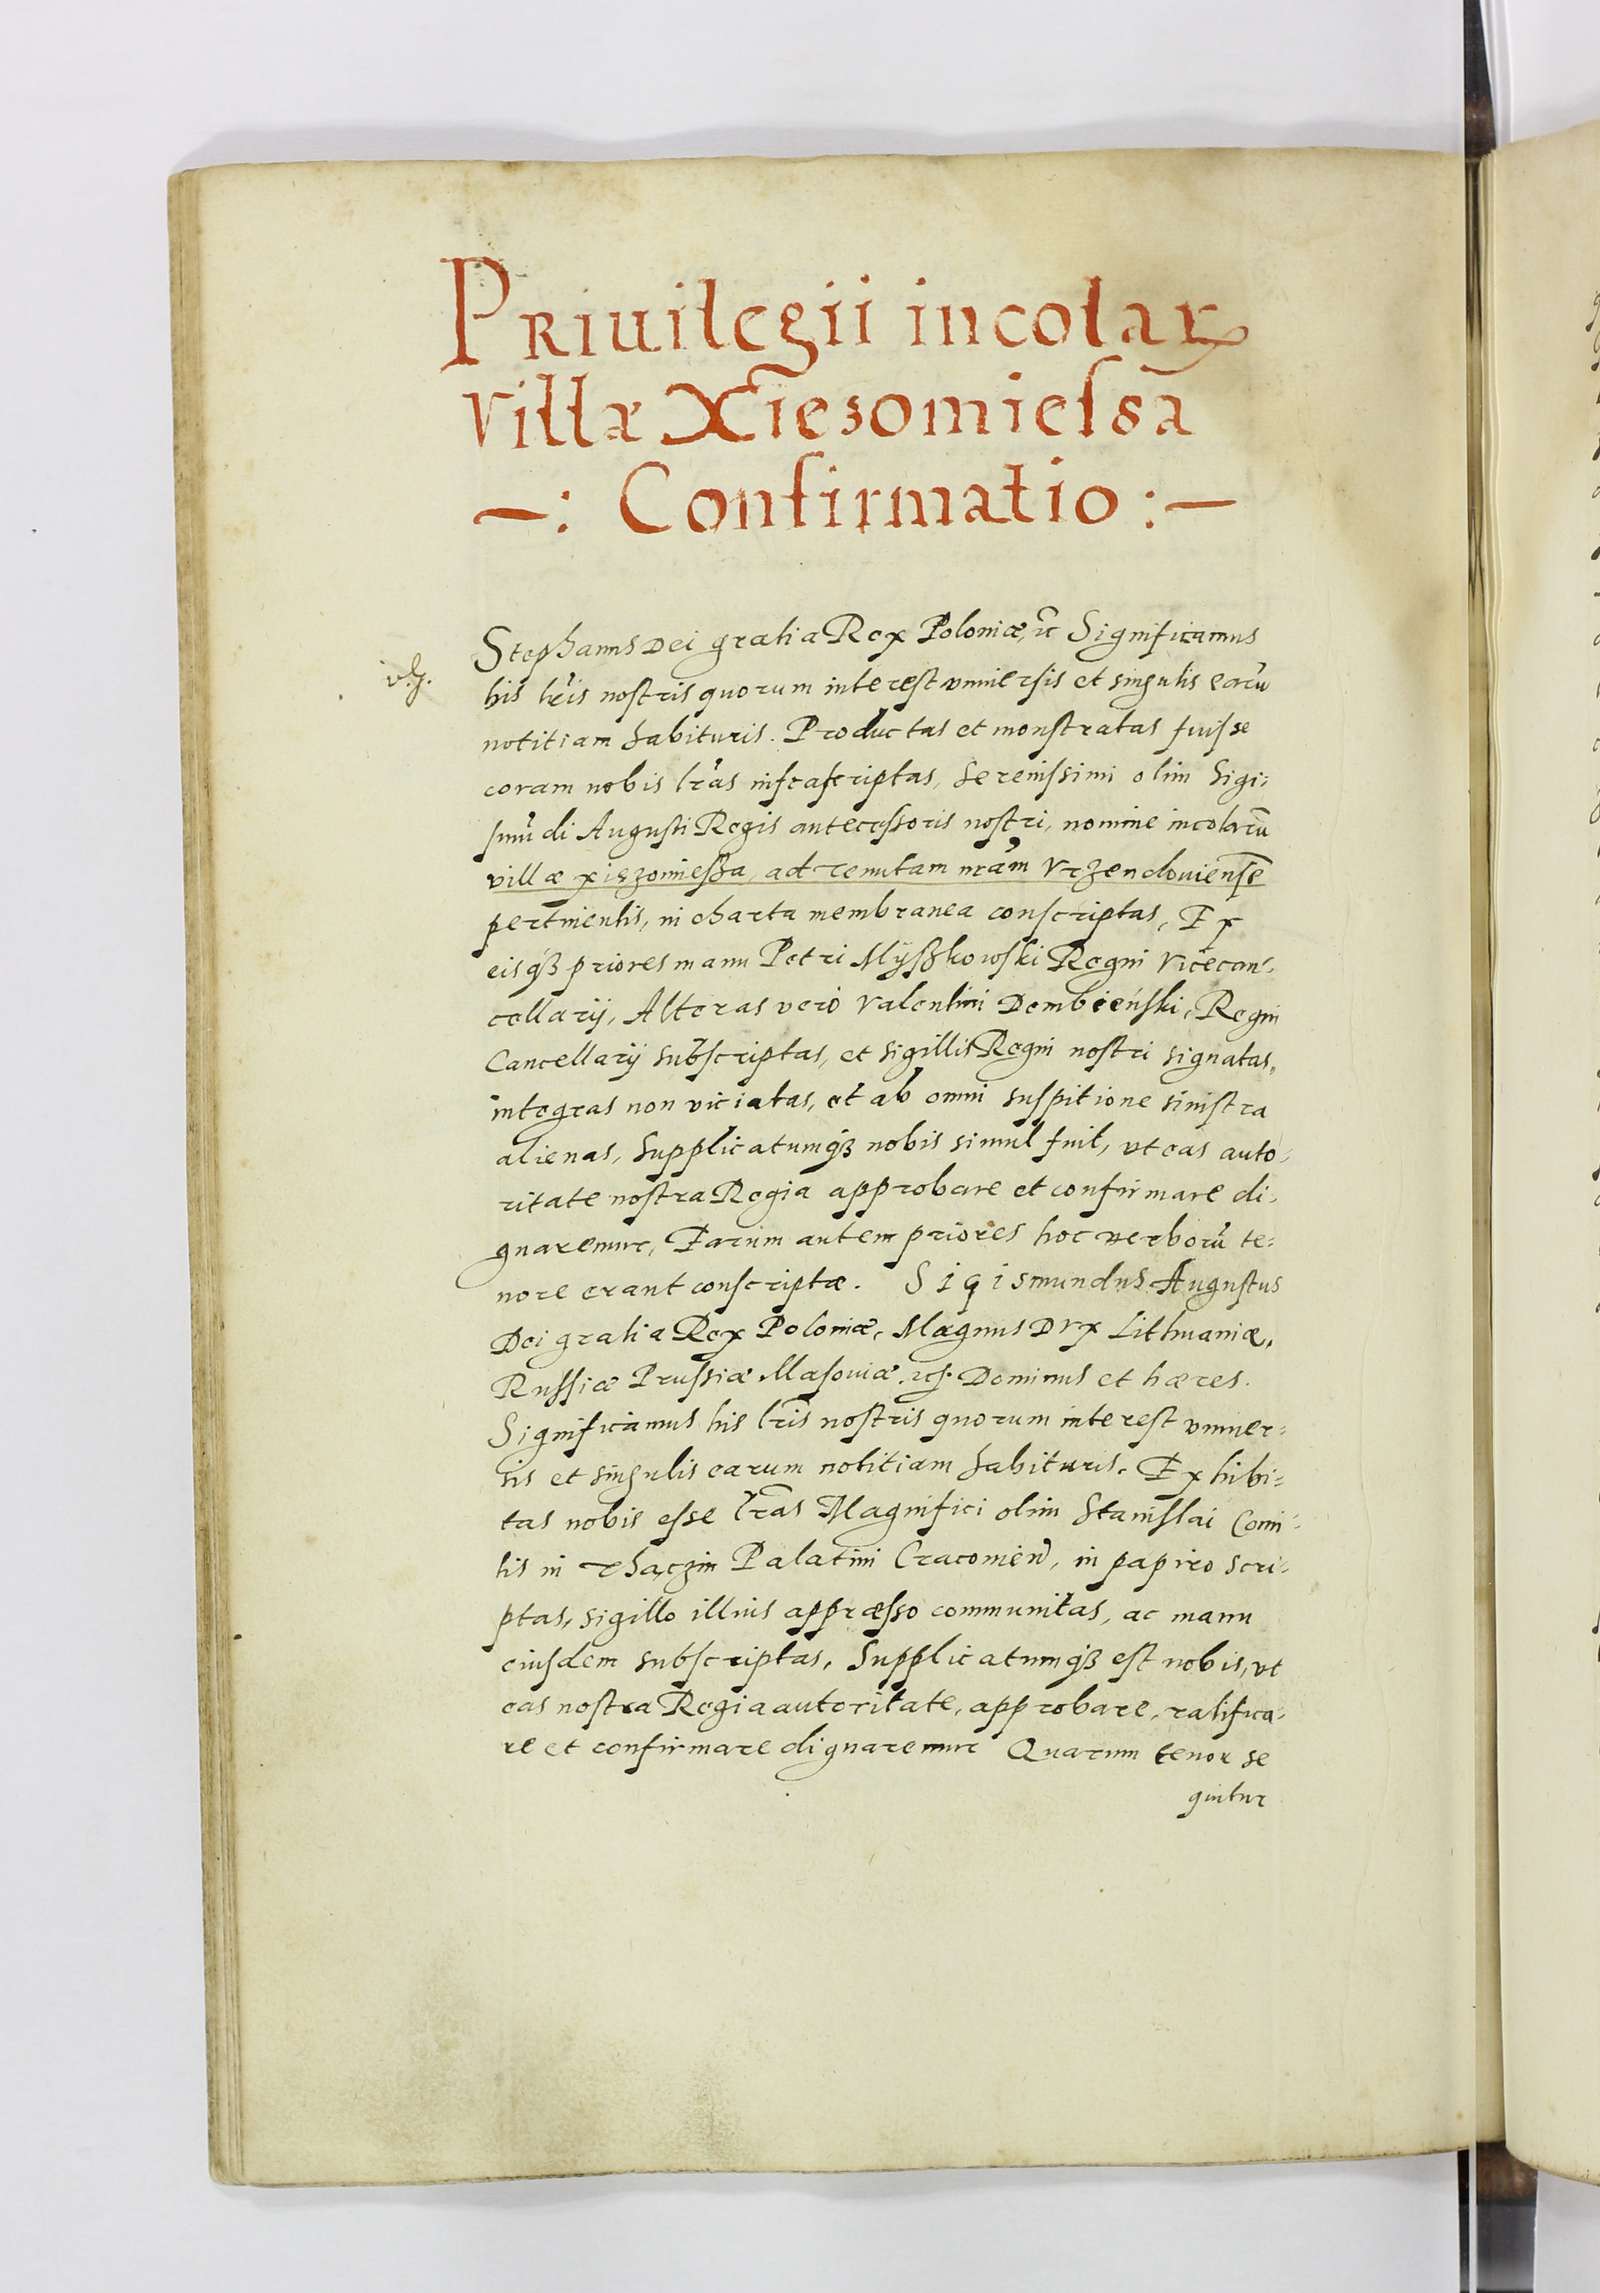 Priuilegii incolarꝝ
Villæ Xiesomießa
—: Confirmatio :—
Stephanus Dei gratia Rex Poloniæ, ꝛc Significamus
his lr̃is nostris quorum interest vniuersis et singulis earũ
notitiam habituris. Productas et monstratas fuisse
coram nobis lr̃as infrascriptas, Serenissimi olim Sigi:
smũdi Augusti Regis antecessoris nostri, nomine incolarũ
villæ xięzomießa, ad tenutam nr̃am Vrzendouiensẽ
pertinentis, in charta membranea conscriptas, Ex
eisqꝫ priores manu Petri Myßkowski Regni Vicecan:
cellarij, Alteras vero Valentini Dembieński, Regni
Cancellarij subscriptas, et sigillis Regni nostri signatas,
integras non viciatas, et ab omni suspitione sinistra
alienas, Supplicatumqꝫ nobis simul fuit, vt eas auto:
ritate nostra Regia approbare et confirmare di:
gnaremur, Earum autem priores hoc verborũ te:
nore erant conscriptæ. Sigismundus Augustus
Dei gratia Rex Poloniæ, Magnus Dux Lithuaniæ,
Russiæ Prussiæ Masouiæ. ꝛc. Dominus et hæres.
Significamus his lr̃is nostris quorum interest vniuer:
sis et singulis earum notitiam habituris. Exhibi:
tas nobis esse lr̃as Magnifici olim Stanislai Comi:
tis in Thaczin Palatini Cracouieñ, in papiro scri:
ptas, sigillo illius appræsso communitas, ac manu
eiusdem subscriptas, Supplicatumqꝫ est nobis, vt
eas nostra Regia autoritate, approbare, ratifica:
re et confirmare dignaremur Quarum tenor se
quitur